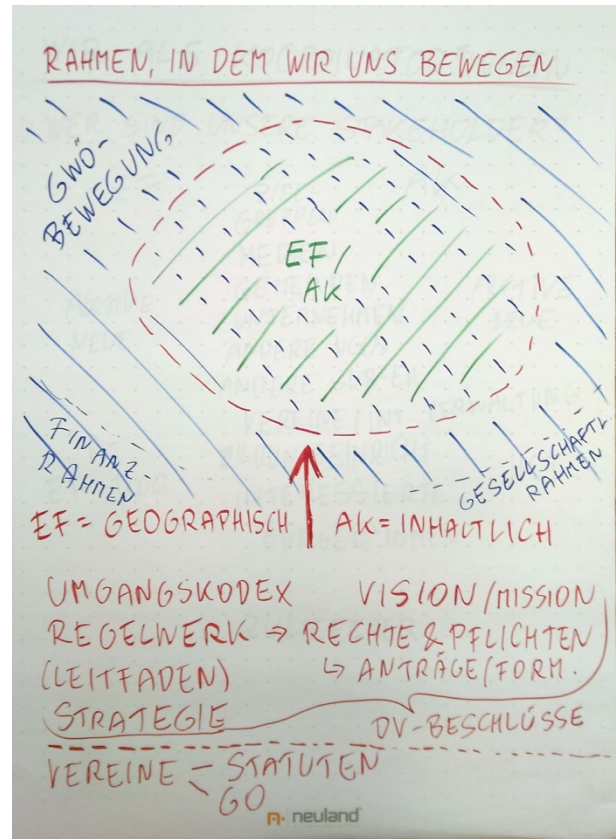 RAHMEN, IN DEM WIR UNS BEWEGEN
GWÖ-
BEWEGUNG
EF/
AK
FINANZ-
RAHMEN
GESELLSCHAFTL
RAHMEN
EF = GEOGRAPHISCH
AK = INHALTLICH
UMGANGSKODEX
VISION/MISSION
REGELWERK → RECHTE & PFLICHTEN
(LEITFADEN)
↳ ANTRÄGE/FORM.
STRATEGIE
DV-BESCHLÜSSE
VEREINE – STATUTEN
GO
neuland